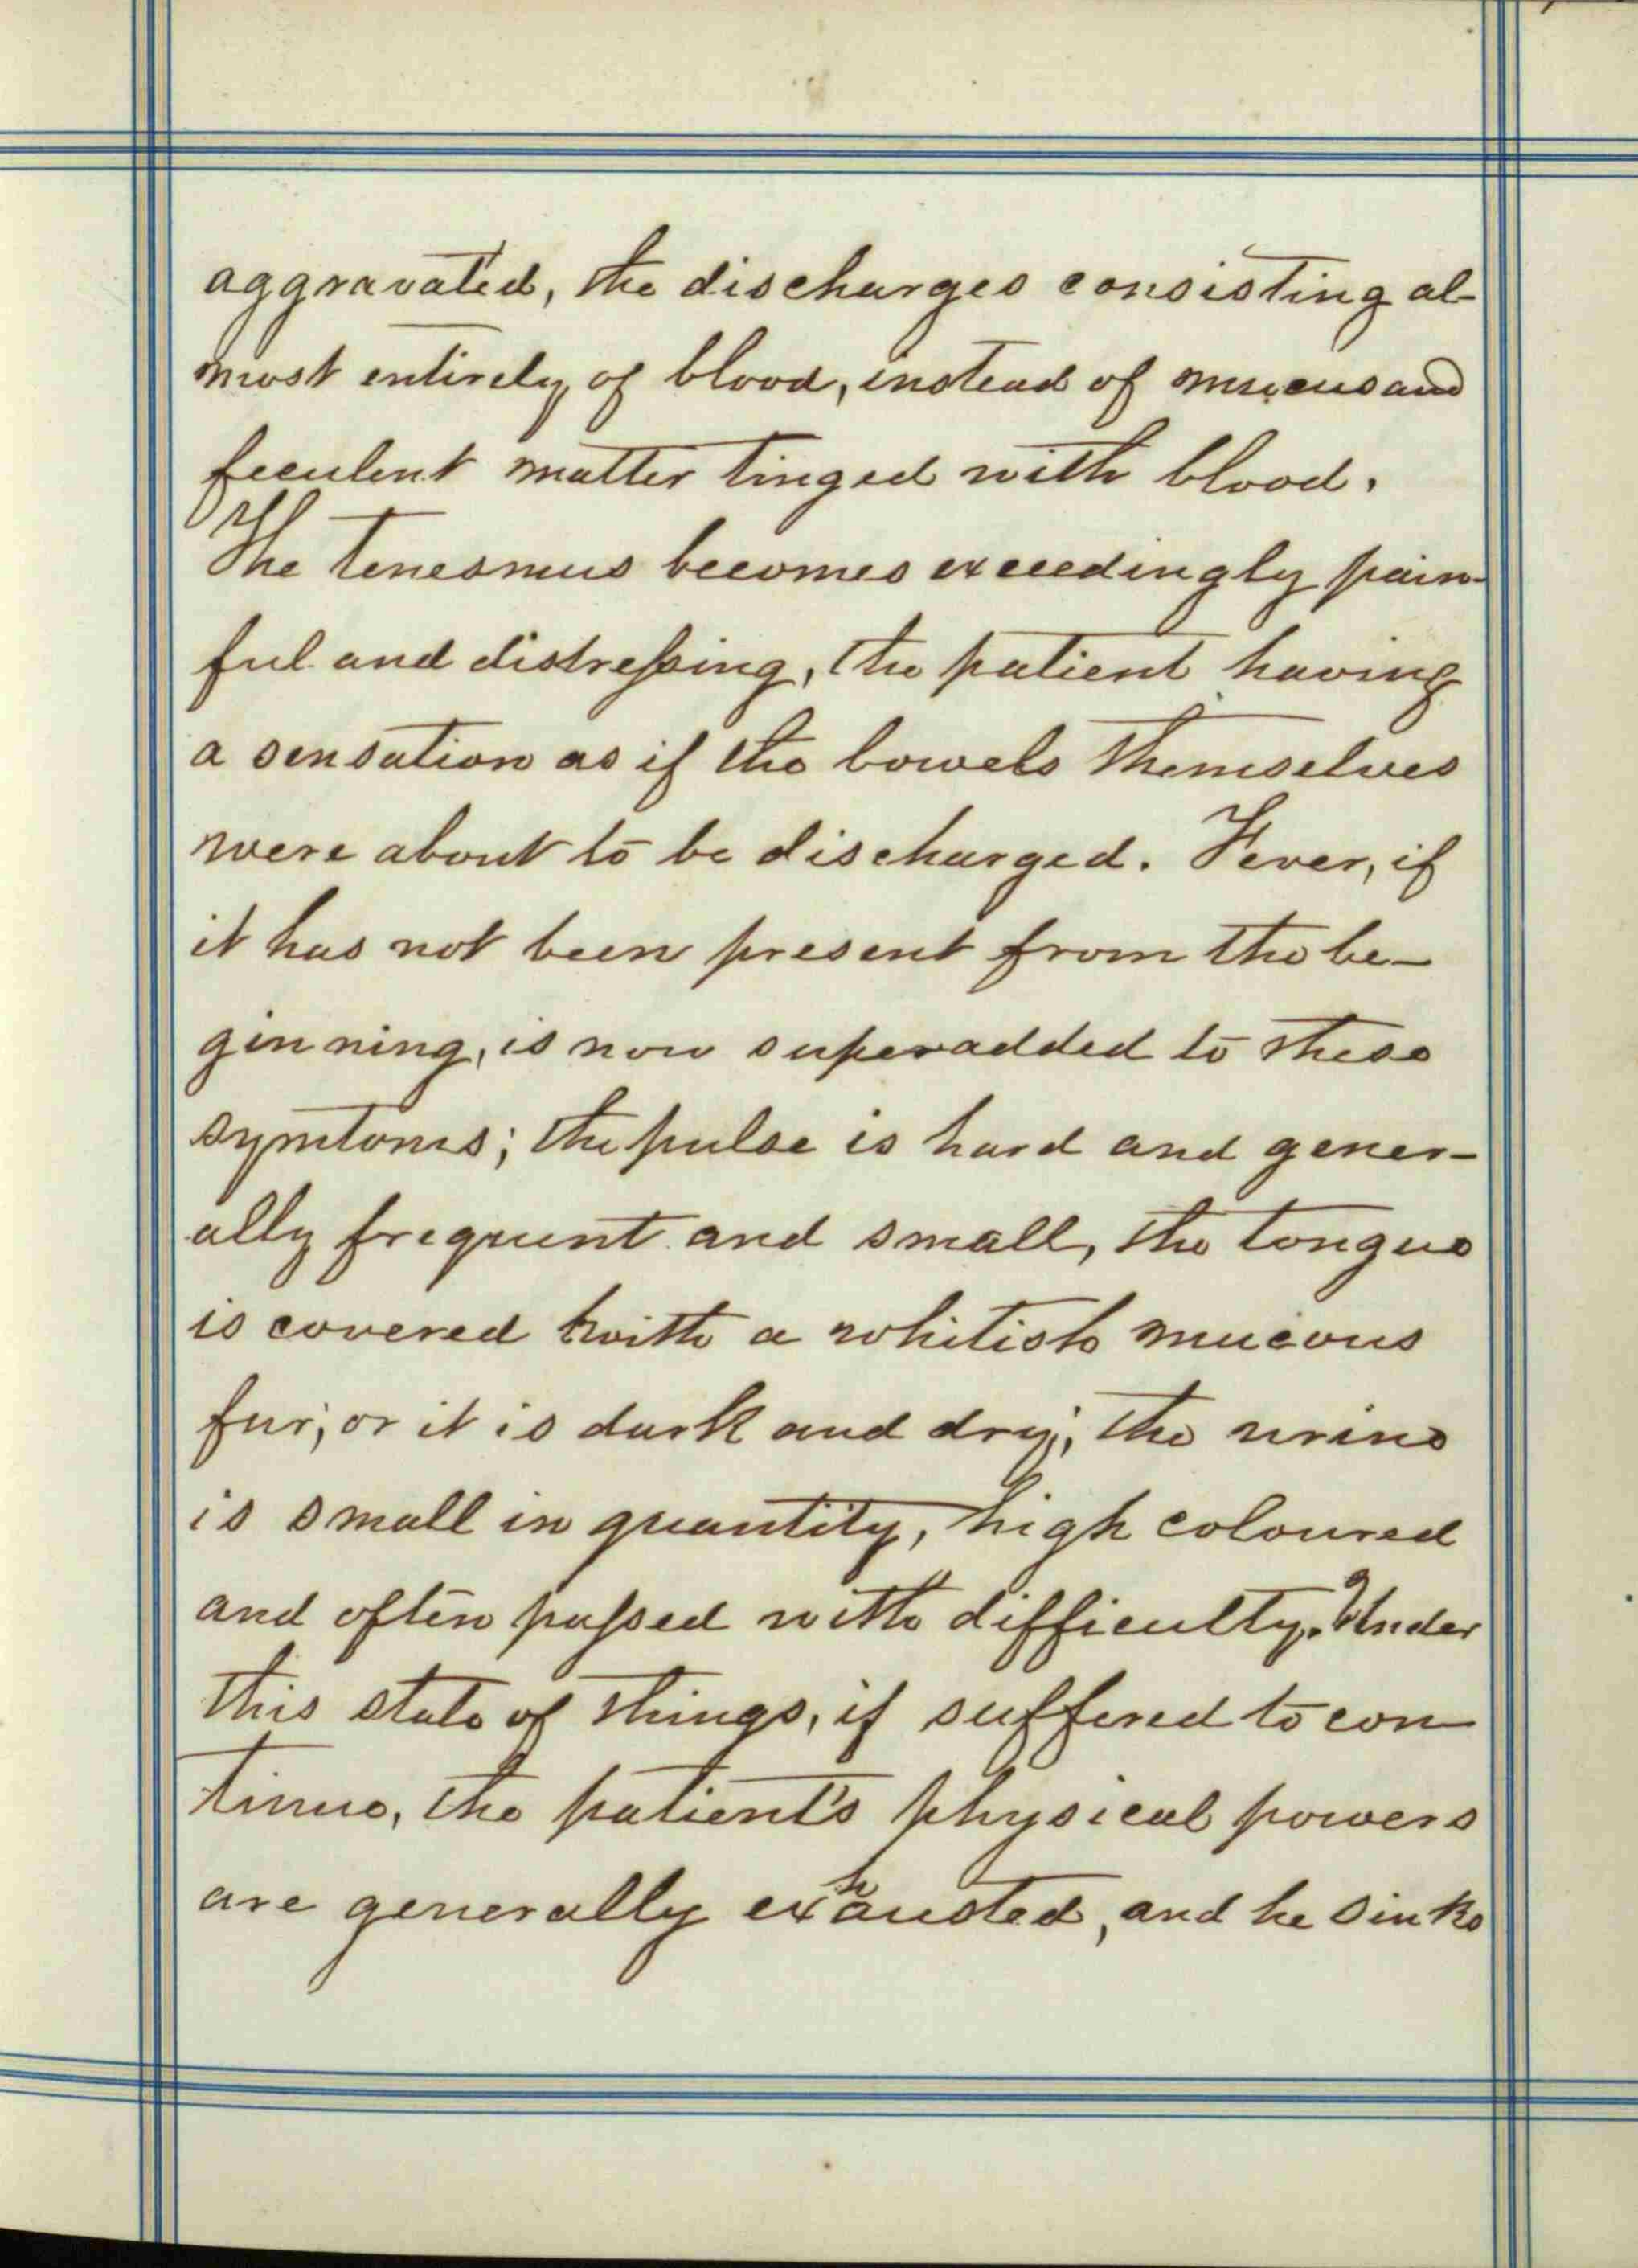 aggravated, the discharges consisting al-
most entirely of blood, instead of mucus and
feculent matter tinged with blood.
The tenesmus becomes exceedingly pain-
ful and distressing, the patient having
a sensation as if the bowels themselves
were about to be discharged. Fever, if
it has not been present from the be-
ginning, is now superadded to these
symtoms; the pulse is hard and gener-
ally frequent and small, the tongue
is covered with a whitish mucous
fur; or it is dark and dry; the urine
is small in quantity, high coloured
and often passed with difficulty. Under
this state of things, if suffered to con-
tinue, the patient's physical powers
are generally exhausted, and he sinks